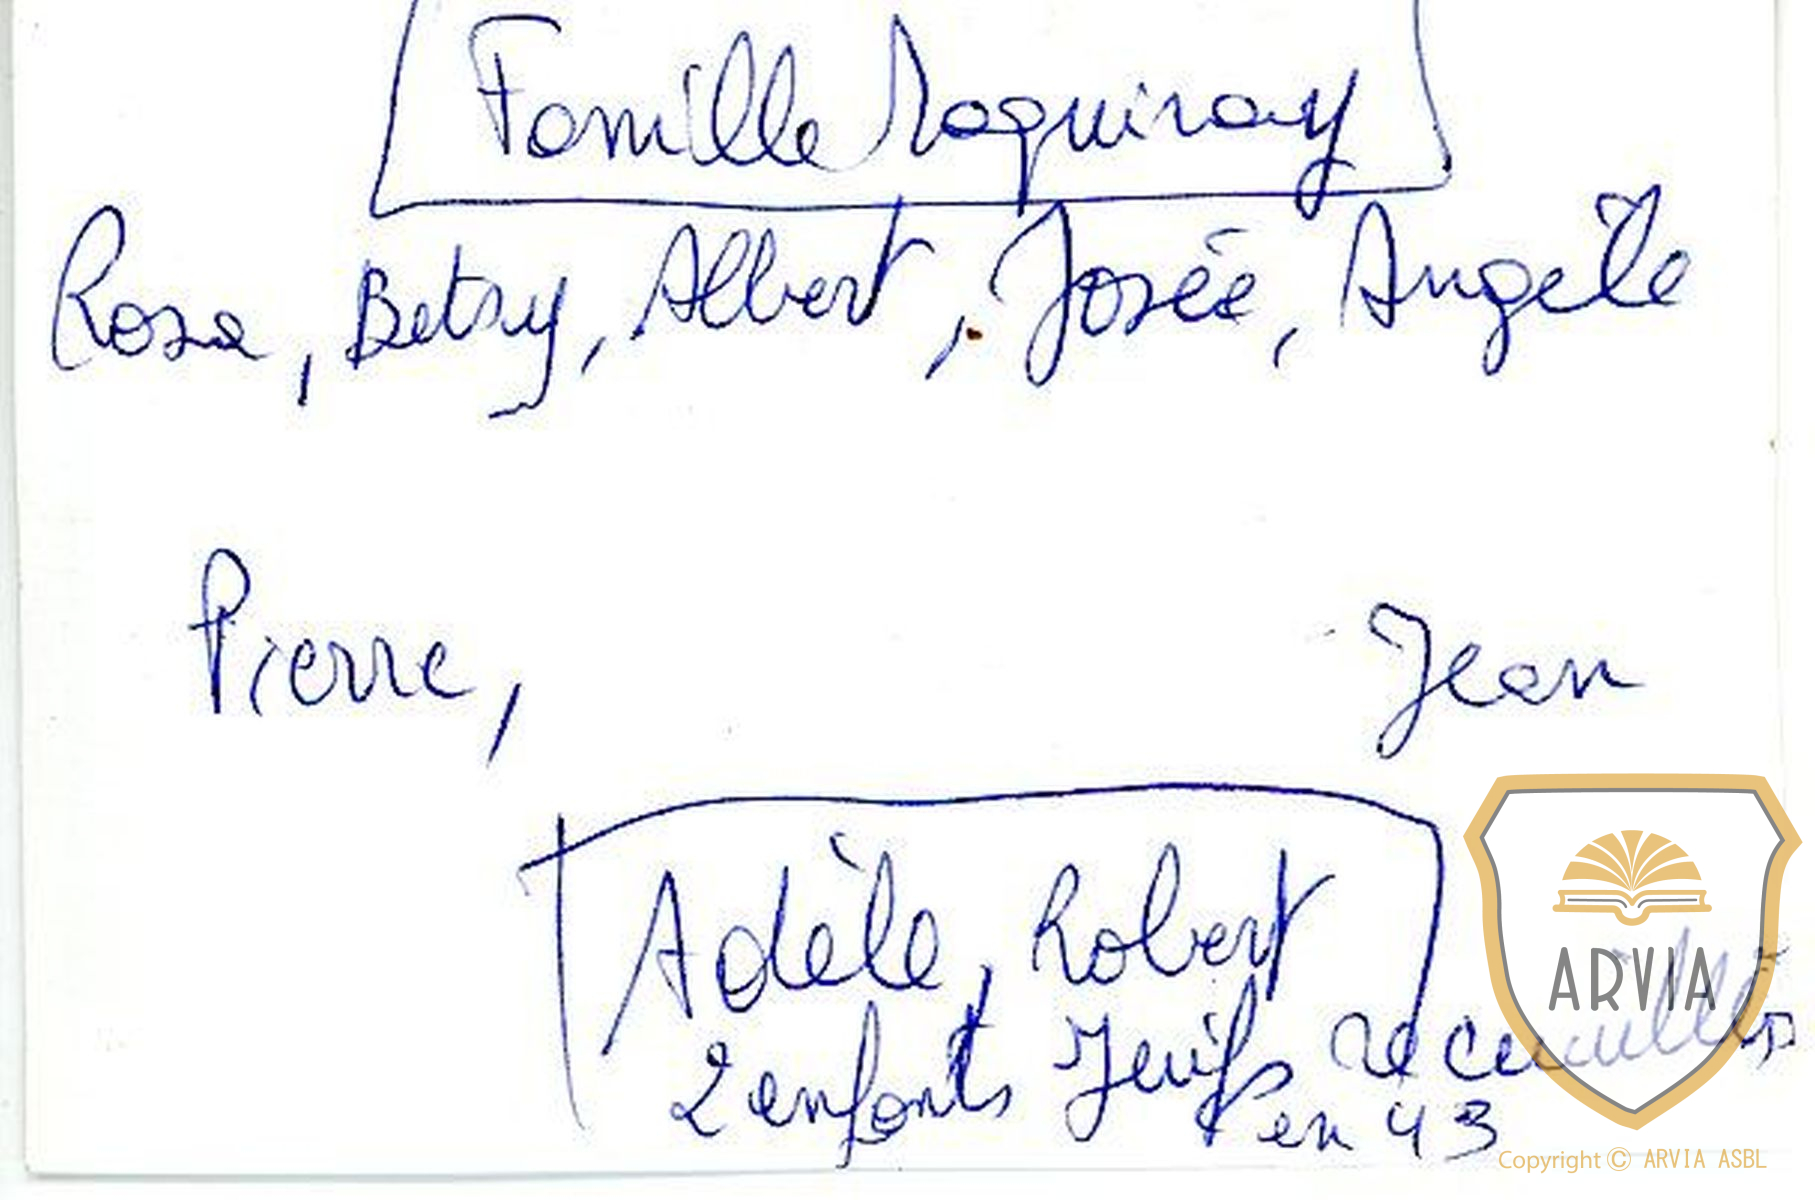 Famille Maquinay
Rosa, Betsy, Albert, Josée, Angèle
Pierre, Jean
Adèle, Robert
2 enfants Juifs recueillis
en 43
ARVIA
Copyright © ARVIA ASBL